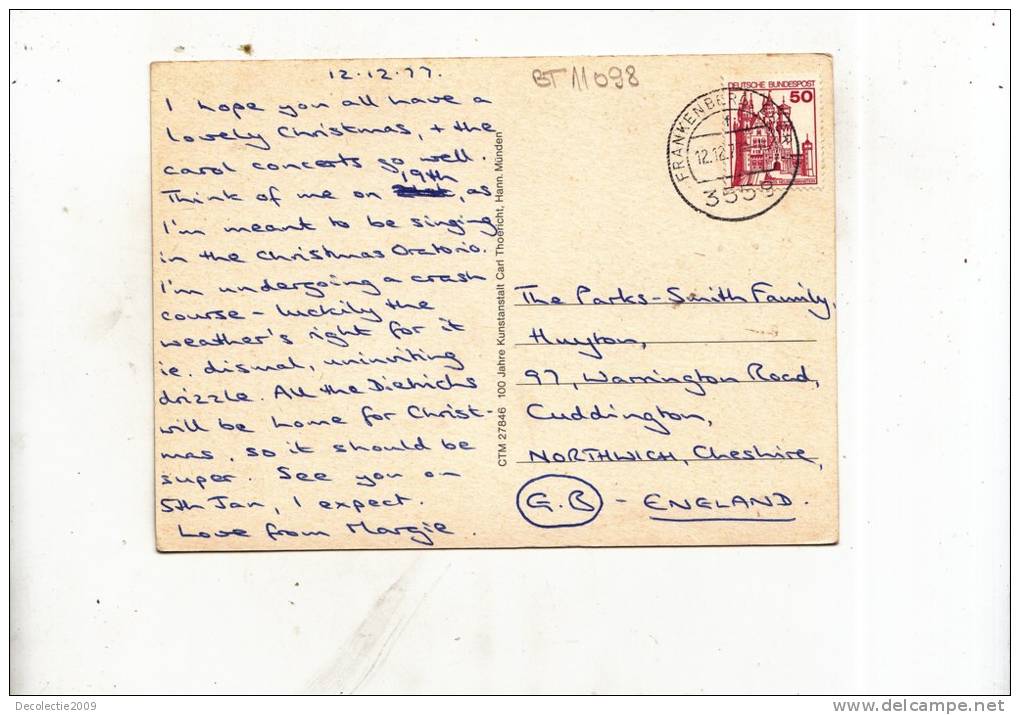 12.12.77.
I hope you all have a
lovely Christmas, + the
carol concerts go well.
Think of me on 19th, as
I'm meant to be singing
in the Christmas Oratorio.
I'm undergoing a crash
course - luckily the
weather's right for it
ie. dismal, uninviting
drizzle. All the Dietrichs
will be home for Christ-
mas, so it should be
super. See you on
5th Jan, I expect.
Love from Margie
CTM 27846 100 Jahre Kunstanstalt Carl Thoericht, Hann. Münden
BT 11098
DEUTSCHE BUNDESPOST
50
FRANKENBERG
12.12.7
3559
The Parks-Smith Family,
Huyton,
97, Warrington Road,
Cuddington,
NORTHWICH, Cheshire,
G.B - ENGLAND.
Decolectie2009
delcampe.net